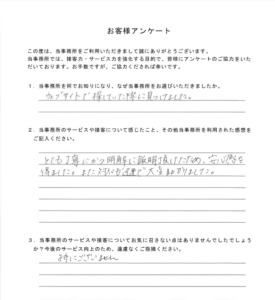 お客様アンケート
この度は、当事務所をご利用いただきまして誠にありがとうございます。
当事務所では、接客力・サービス力を強化する目的で、皆様にアンケートのご協力をいた
だいております。お手数ですが、ご協力くだされば幸いです。
1．当事務所を何でお知りになり、なぜ当事務所をお選びいただきましたか。
ウェブサイトで探していた際に見つけました。
2．当事務所のサービスや接客について感じたこと、その他当事務所を利用された感想を
ご記入ください。
とても丁寧にかつ明解に説明頂けたため、安心感を
得ました。また対応が迅速で大変助かりました。
3．当事務所のサービスや接客についてお気に召さない点はありませんでしたでしょう
か？今後のサービス向上のため、遠慮なくご指摘ください。
特にございません